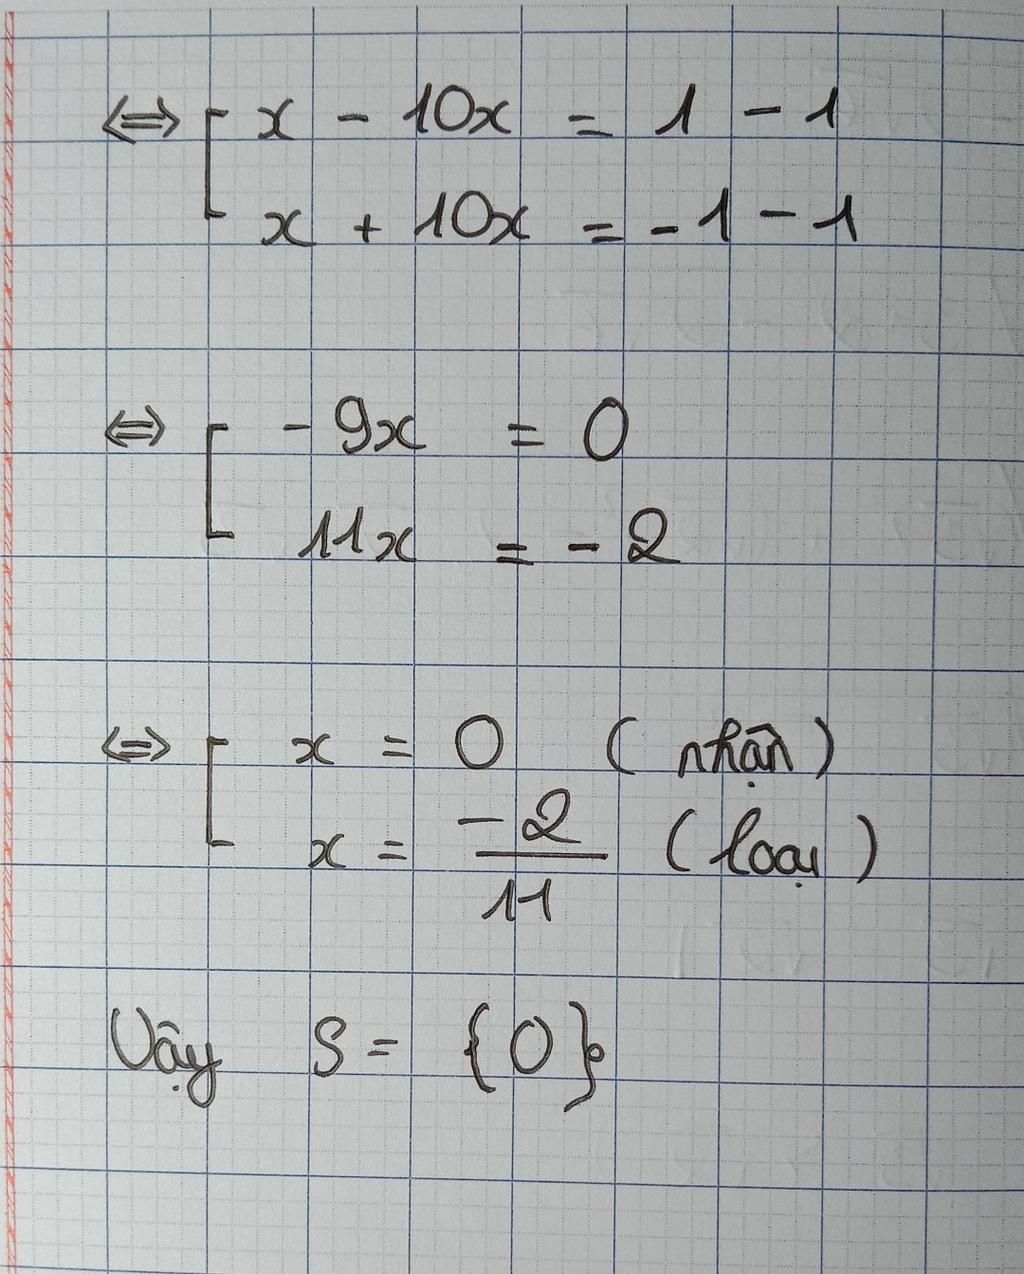 ⇔ [ x - 10x = 1 - 1
x + 10x = -1 - 1
⇔ [ - 9x = 0
11x = - 2
⇔ [ x = 0 ( nhận )
x = -2/11 ( loại )
Vậy S = {0}